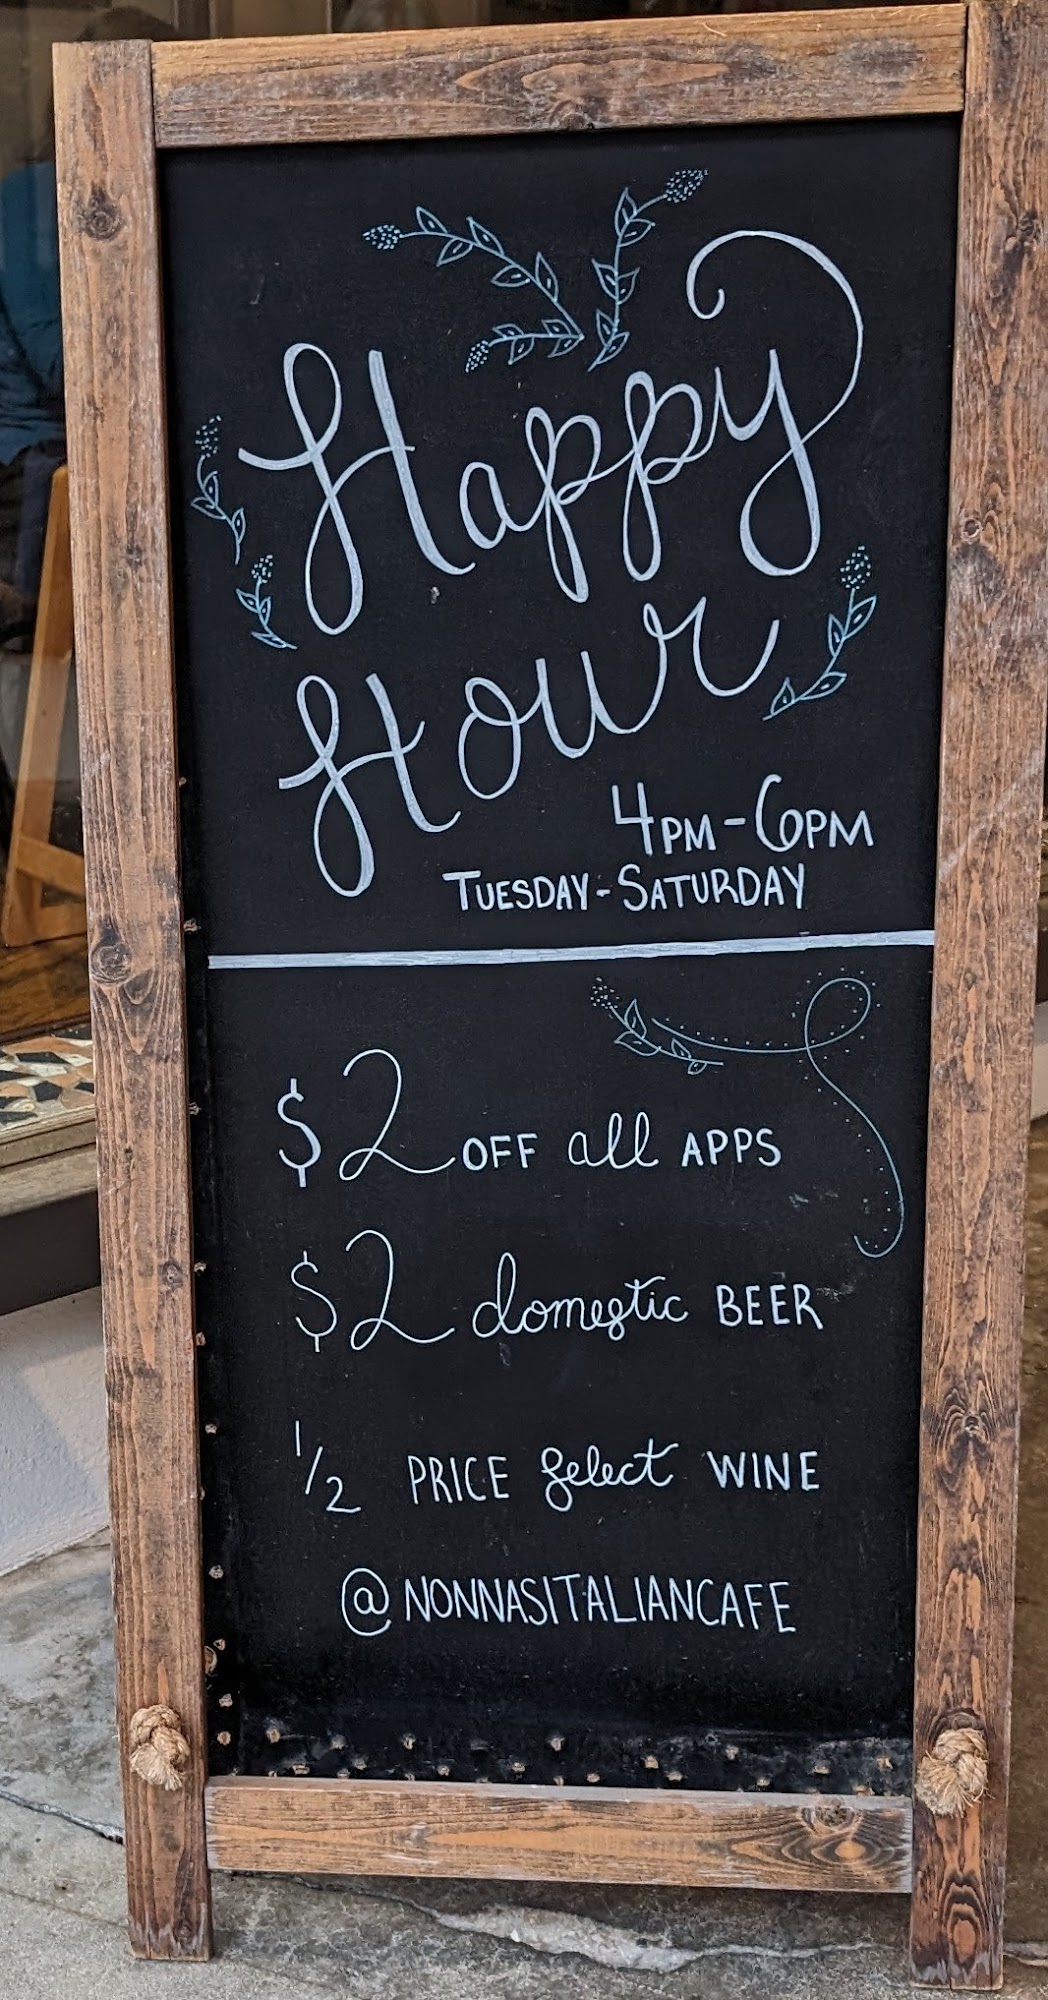 Happy
Hour
4PM-6PM
TUESDAY-SATURDAY
$2 OFF all APPS
$2 domestic BEER
1/2 PRICE select WINE
@NONNASITALIANCAFE